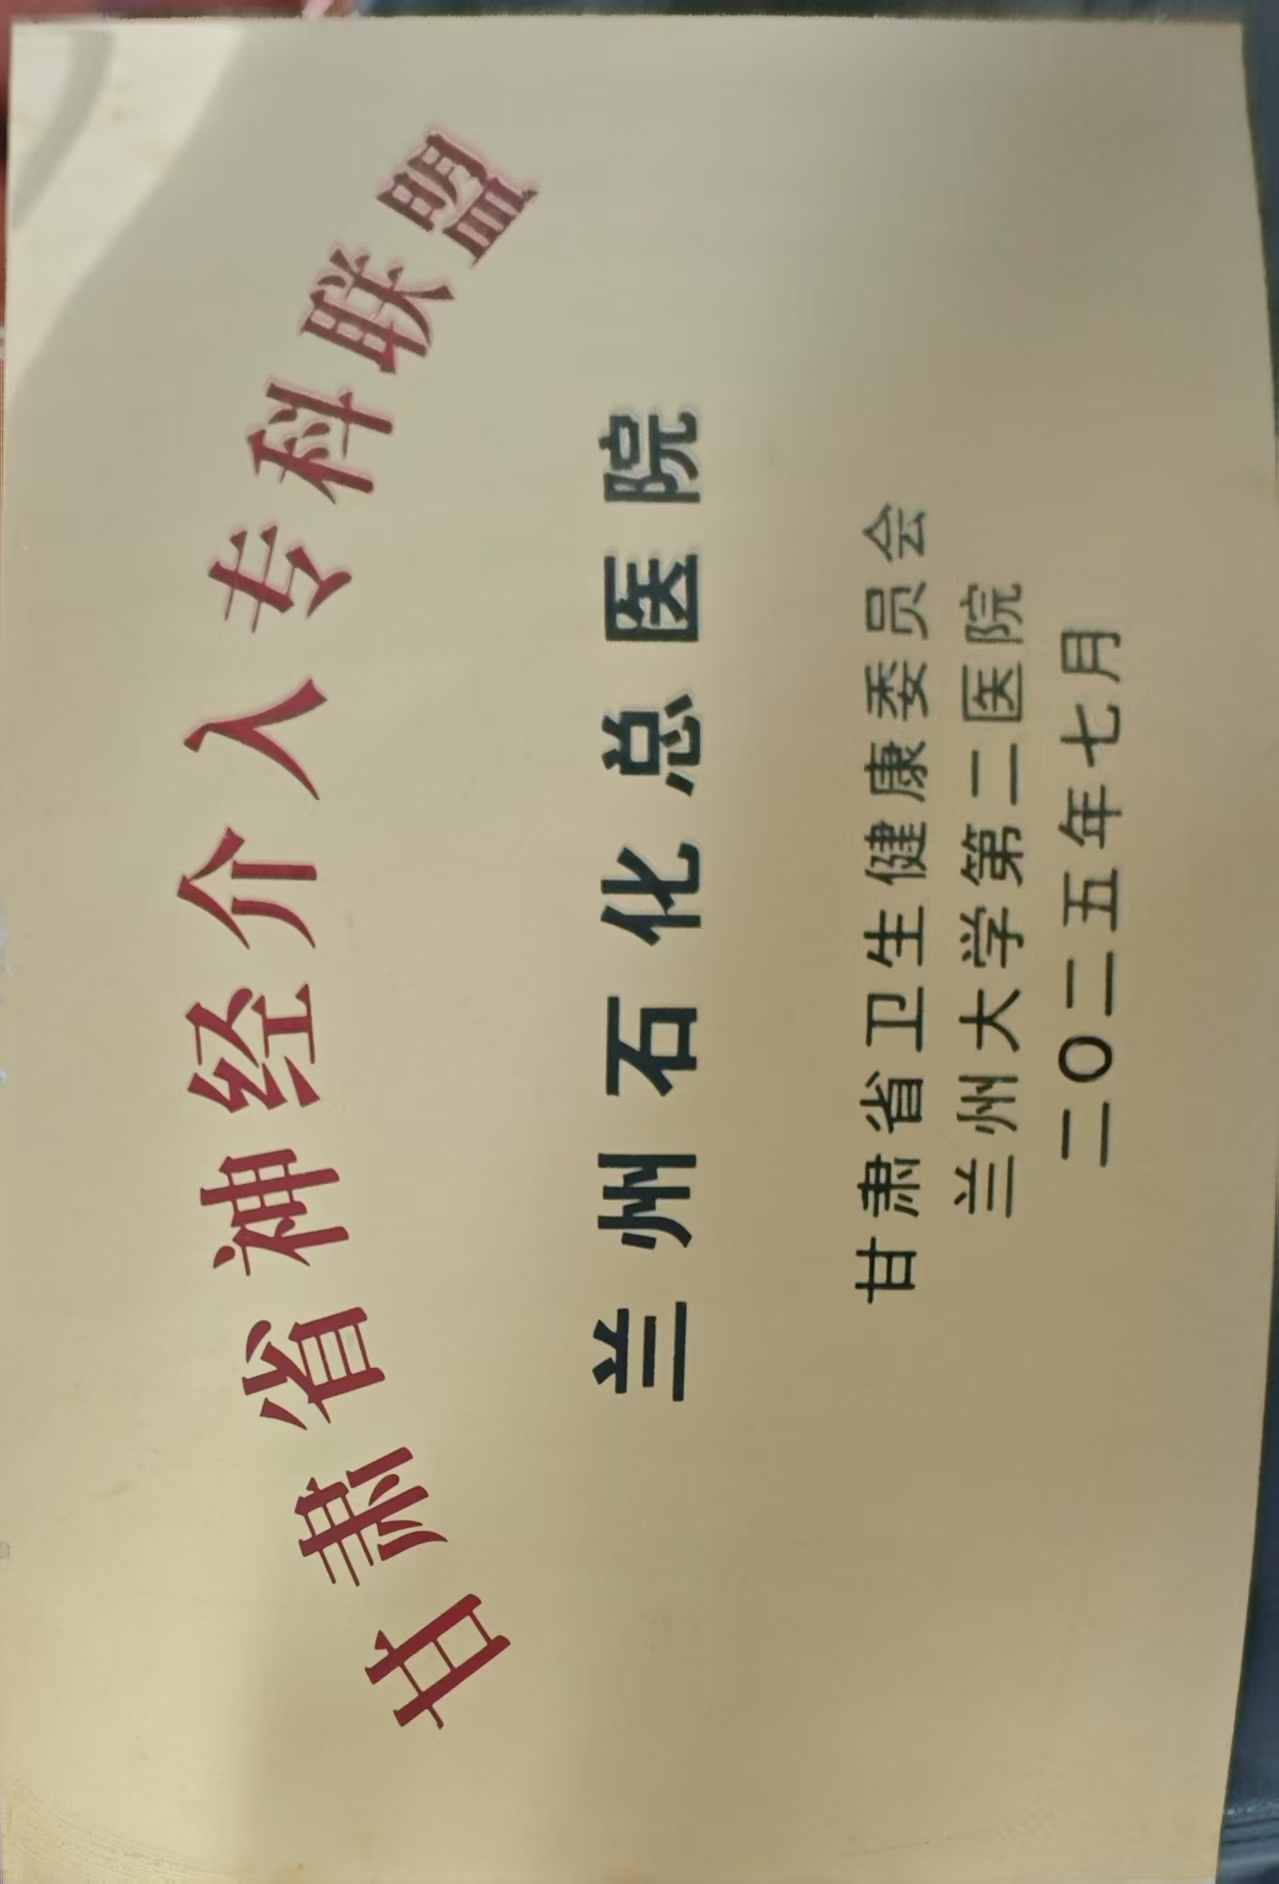 甘肃省神经介入专科联盟
兰州石化总医院
甘肃省卫生健康委员会
兰州大学第二医院
二〇二五年七月